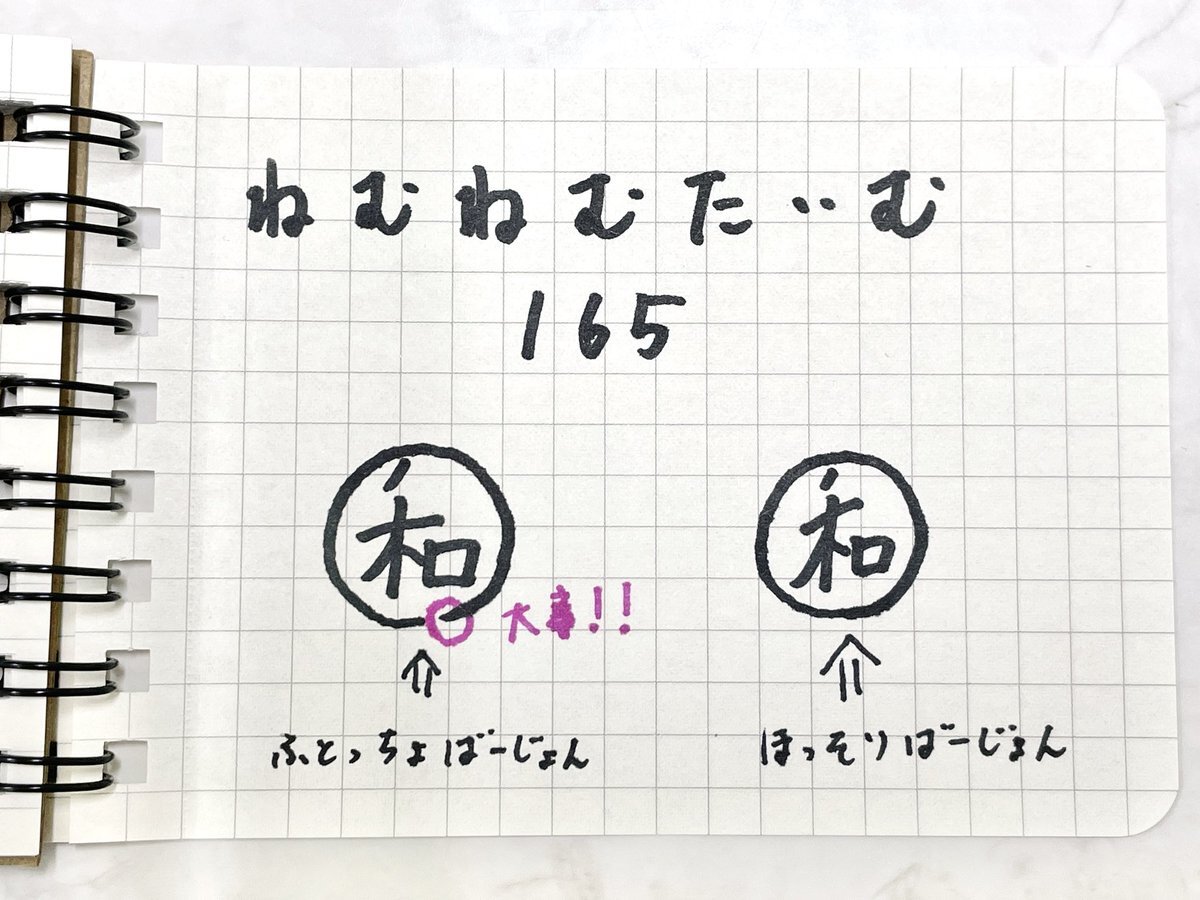 ねむねむたいむ
165
和 和
大事!!
ふとっちょばーじょん ほっそりばーじょん